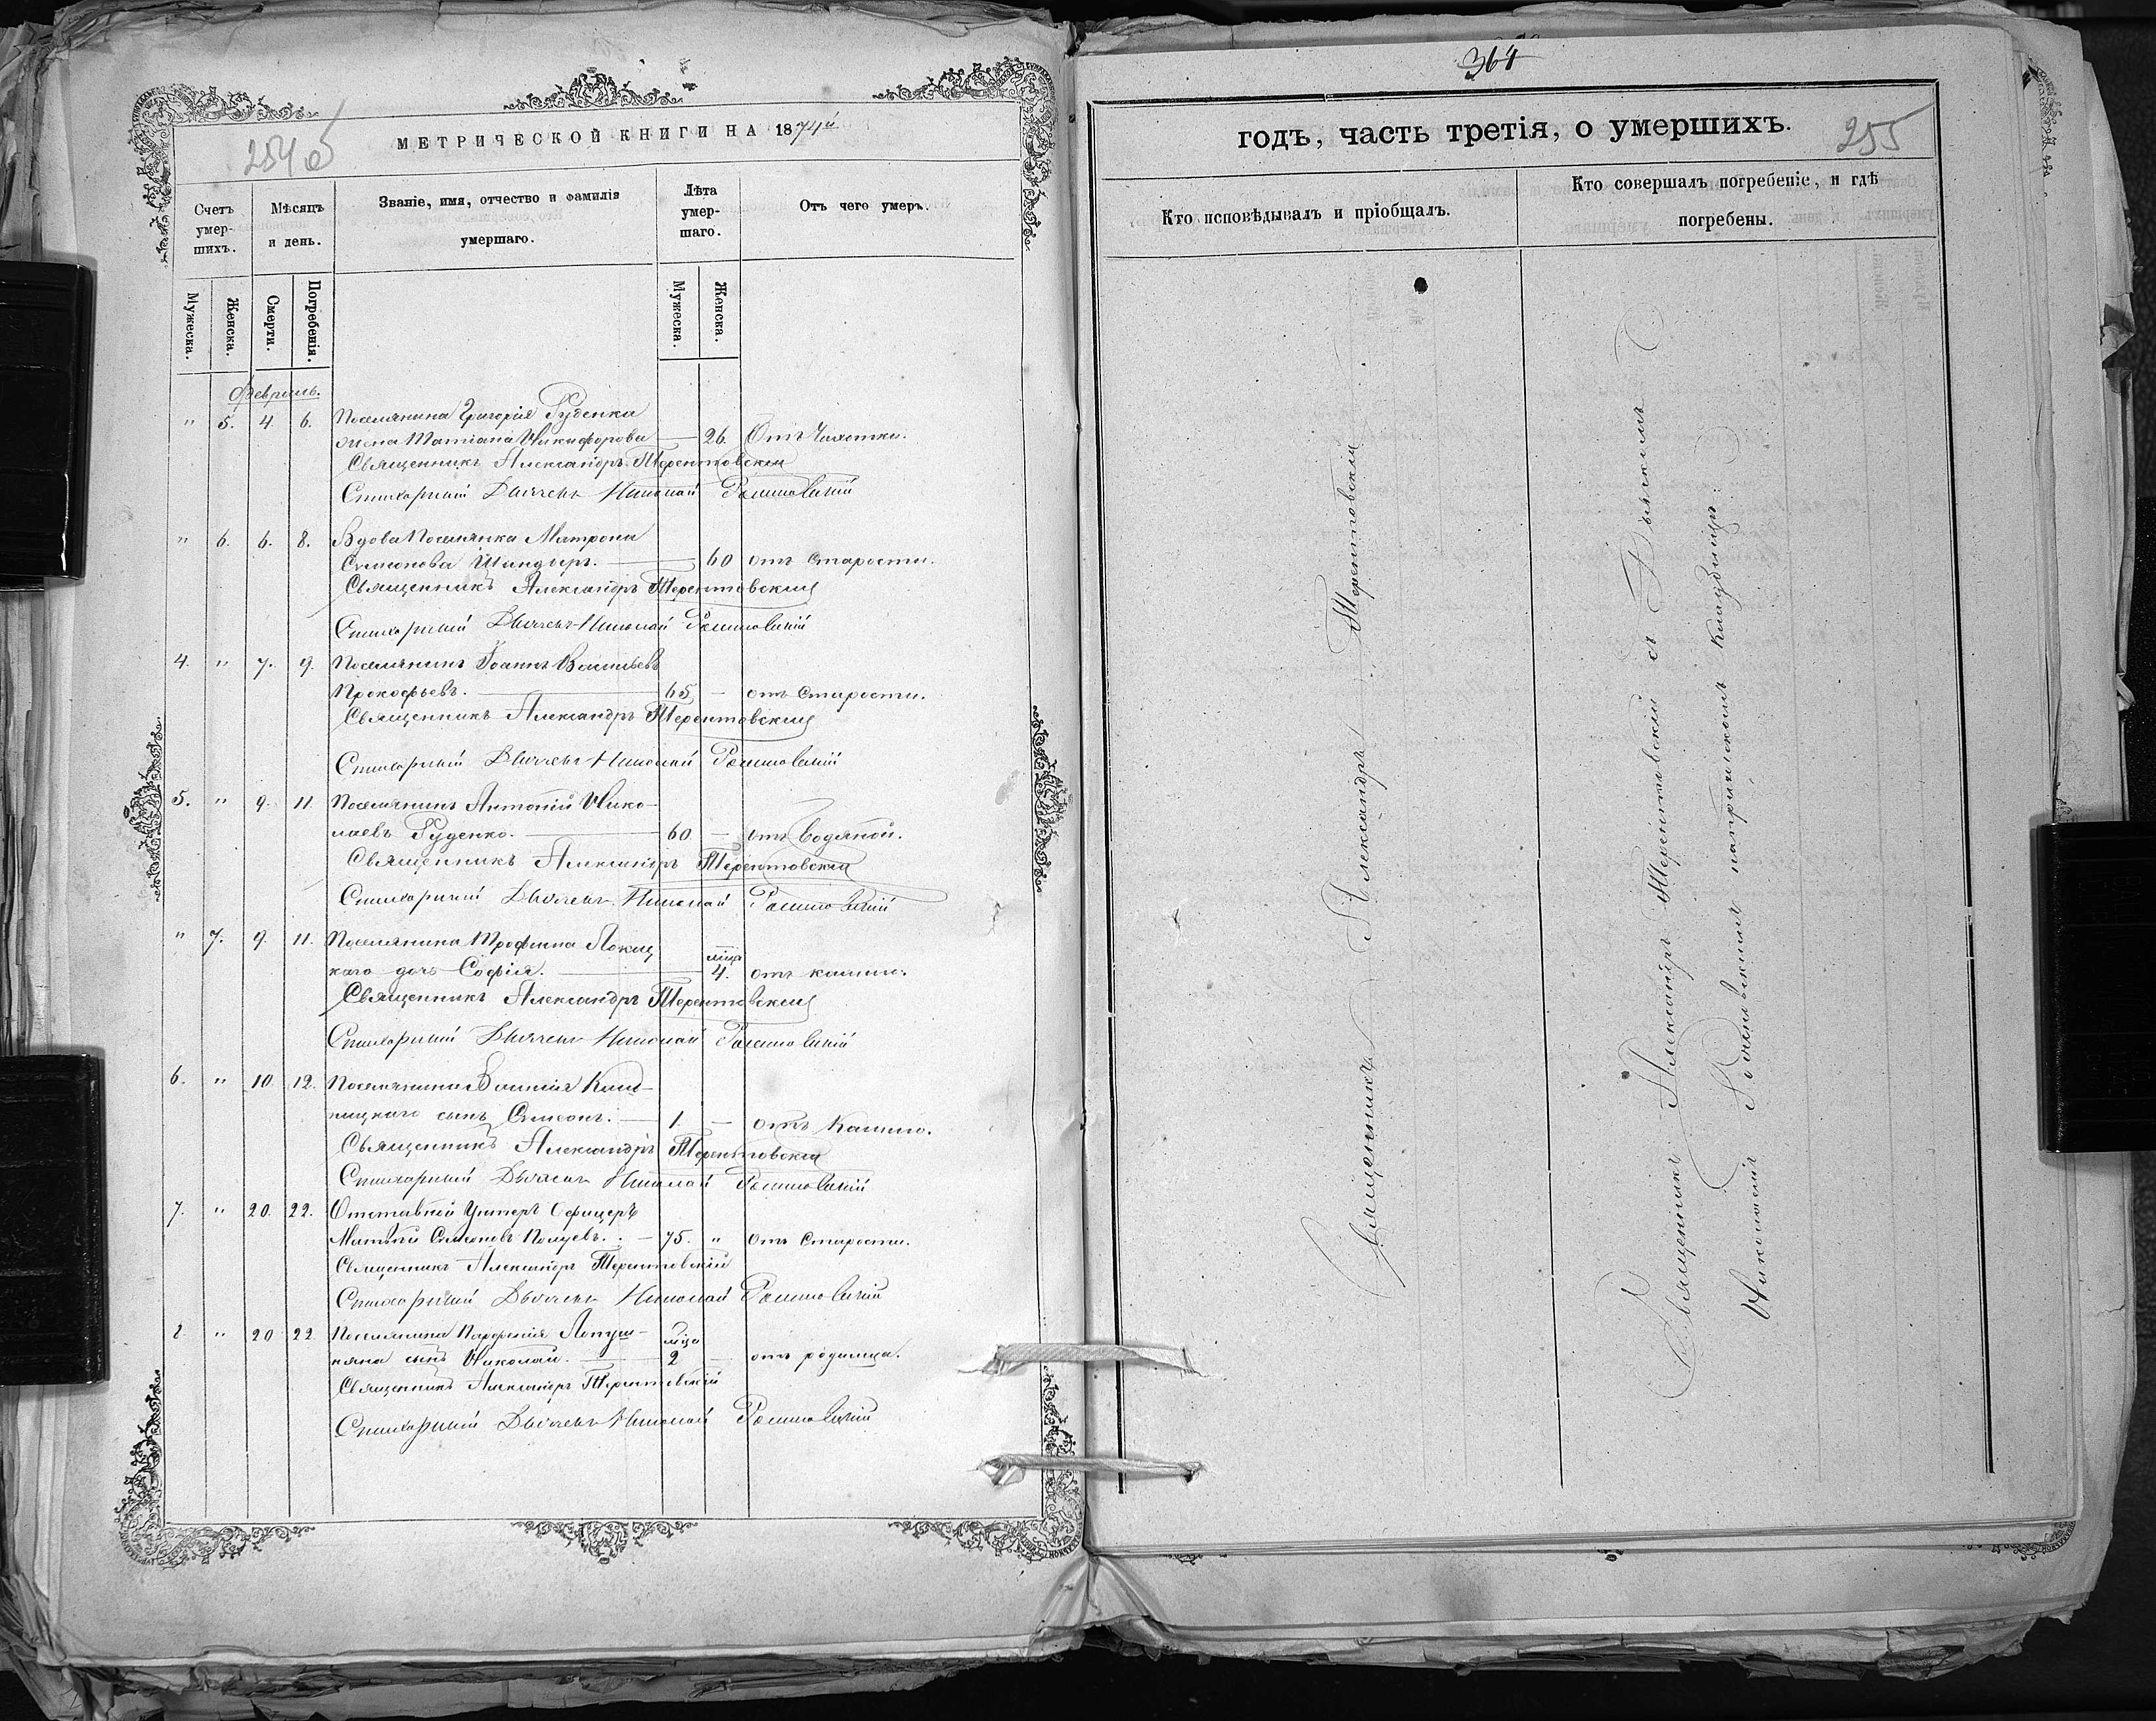 254 об
МЕТРИЧЕСКОЙ КНИГИ НА 1874й
Счетъ умер-шихъ.
Мѣсяцъ и день.
Званіе, имя, отчество и фамилія умершаго.
Лѣта умер-шаго.
Отъ чего умеръ.
Мужеска.
Женска.
Смерти.
Погребенія.
Мужеска.
Женска.
Февраль.
" 5. 4 6. Поселянина Григорія Руденка
жена Татіана Никифорова — 26. Отъ Чахотки.
Священникъ Александръ Терентовскій
Стихарный Дьячекъ Николай
" 6. 6. 8. Вдова Поселянка Матрона
Симеонова — 60 отъ старости.
Священникъ Александръ Терентовскій
Стихарный Дьячекъ Николай
4. " 7. 9. Поселянинъ Іоаннъ Васильевъ
Прокофьевъ. — 65 — отъ старости.
Священникъ Александръ Терентовскій
Стихарный Дьячекъ Николай
5. " 9. 11. Поселянинъ Антоній Нико-
лаевъ Руденко. — 60 — отъ водяной.
Священникъ Александръ Терентовскій
Стихарный Дьячекъ Николай
" 7. 9. 11. Поселянина Трофима
каго дочь Софія. — мца 4. отъ кашлю.
Священникъ Александръ Терентовскій
Стихарный Дьячекъ Николай
6. " 10 12. Поселянина Василія
ницкаго сынъ Симеонъ. — 1. — отъ Кашлю.
Священникъ Александръ Терентовскій
Стихарный Дьячекъ Николай
7. " 20. 22. Отставной Унтеръ Офицеръ
Симеоновъ — 75. " Отъ Старости.
Священникъ Александръ Терентовскій
Стихарный Дьячекъ Николай
8. " 20 22 Поселянина Парфенія Лопуш-
няна сынъ Николай. — мца 2 — отъ родимца.
Священникъ Александръ Терентовскій
Стихарный Дьячекъ Николай
364
годъ, часть третія, о умершихъ.
255
Кто исповѣдывалъ и пріобщалъ.
Кто совершалъ погребеніе, и гдѣ погребены.
Священникъ Александръ Терентовскій
Священникъ Александръ Терентовскій съ Дьячкомъ
Николаемъ на приходскомъ кладбищѣ.